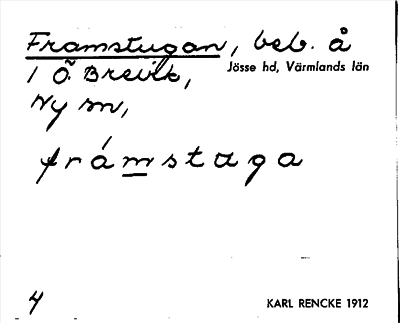 Framstugan, beb. å
1 Ö. Brevik, Jösse hd, Värmlands län
Ny sn,
frámstuga
4 KARL RENCKE 1912